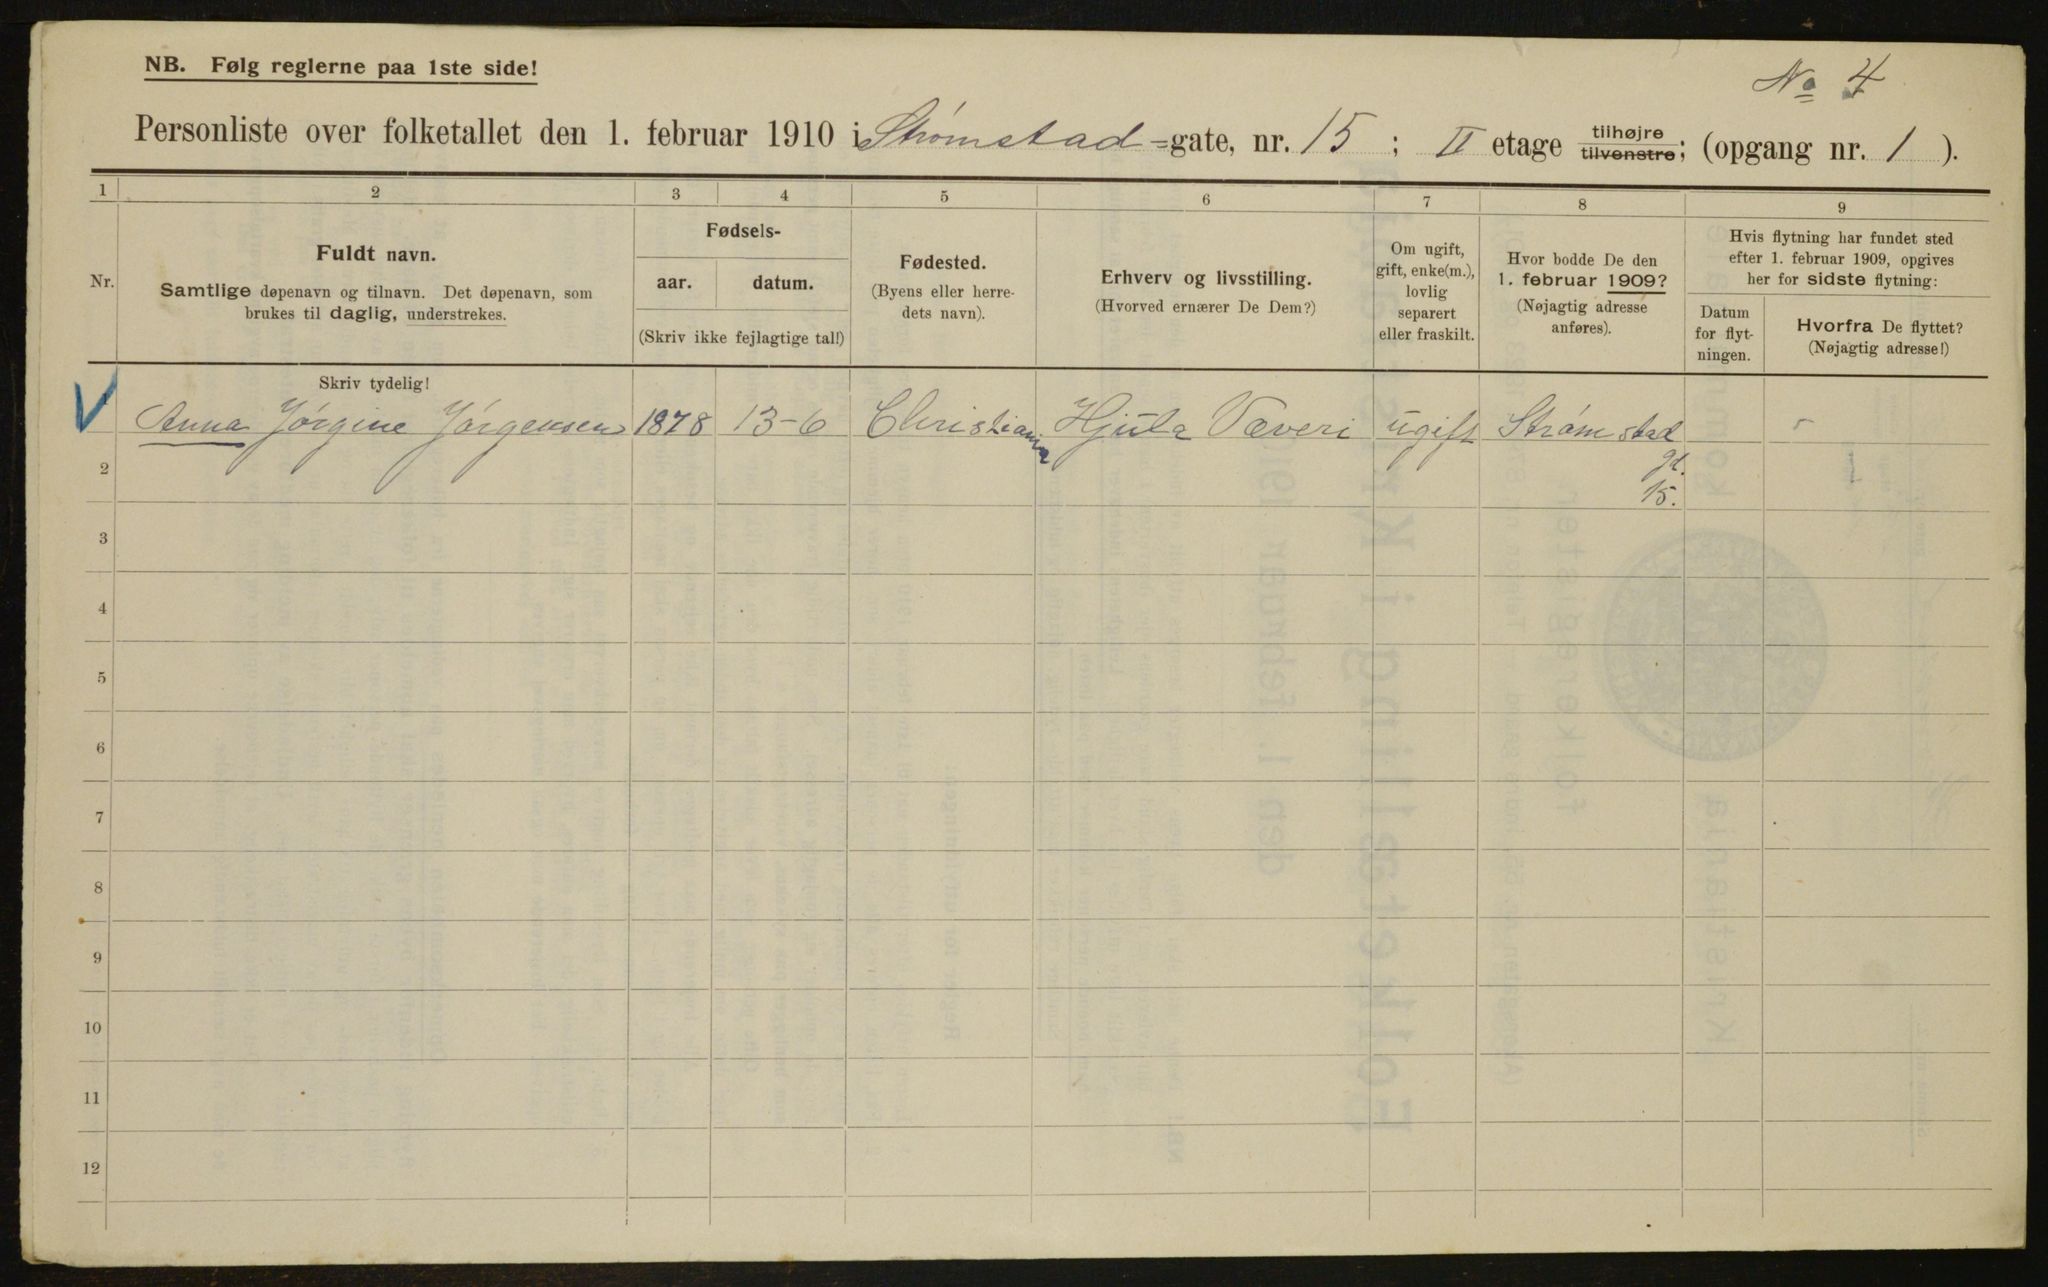 NB. Følg reglerne paa 1ste side!
No 4
Personliste over folketallet den 1. februar 1910 i Strømstad=gate, nr. 15; II etage tilhøjre tilvenstre; (opgang nr. 1).
1 2 3 4 5 6 7 8 9
Nr.
Fuldt navn.
Samtlige døpenavn og tilnavn. Det døpenavn, som
brukes til daglig, understrekes.
Fødsels-
aar. datum.
(Skriv ikke fejlagtige tal!)
Fødested.
(Byens eller herre-
dets navn).
Erhverv og livsstilling.
(Hvorved ernærer De Dem?)
Om ugift,
gift, enke(m.),
lovlig
separert
eller fraskilt.
Hvor bodde De den
1. februar 1909?
(Nøjagtig adresse
anføres).
Hvis flytning har fundet sted
efter 1. februar 1909, opgives
her for sidste flytning:
Datum
for flyt-
ningen.
Hvorfra De flyttet?
(Nøjagtig adresse!)
Skriv tydelig!
1 Anna Jørgine Jørgensen 1878 13-6 Christiania Hjula Væveri ugift Strømstad
gd.
15.
2
3
4
5
6
7
8
9
10
11
12